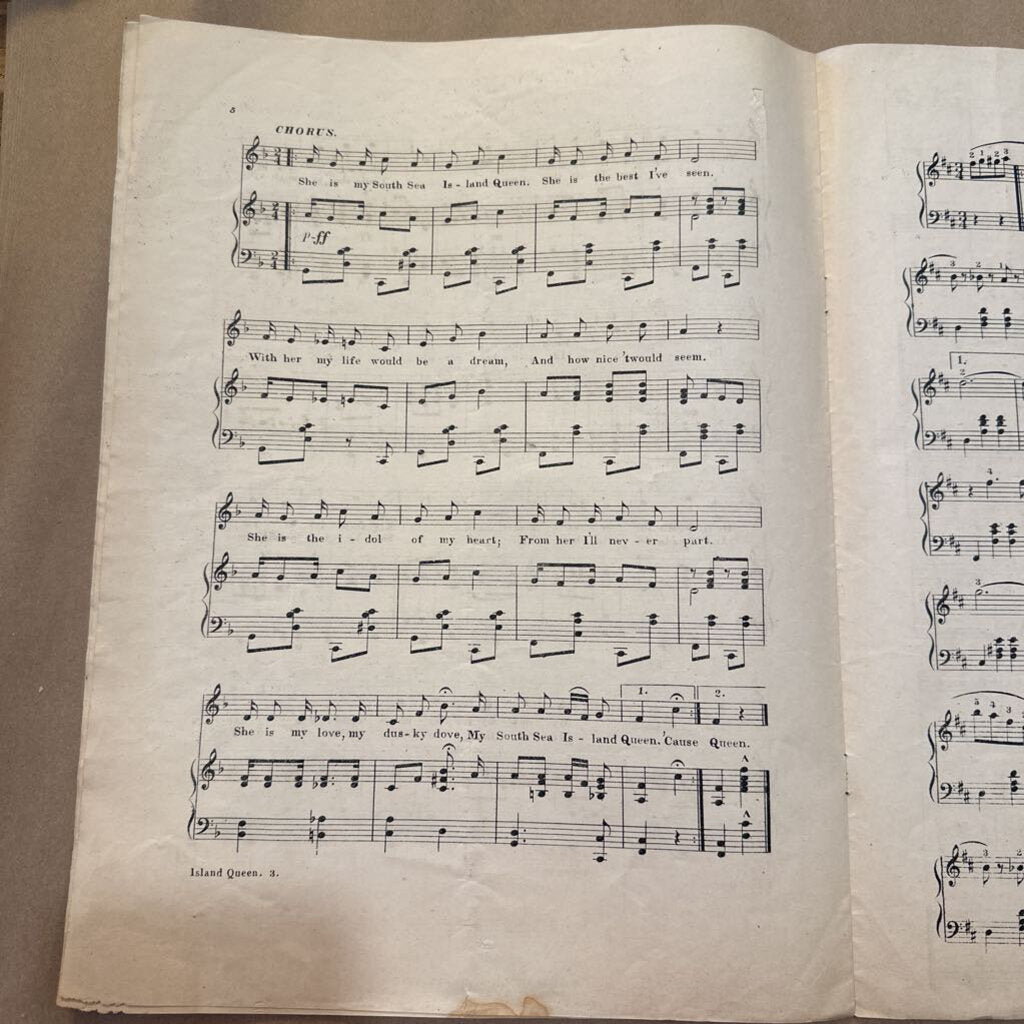 5
CHORUS.
She is my South Sea Is - land Queen. She is the best I've seen.
p-ff
With her my life would be a dream, And how nice 'twould seem.
She is the i - dol of my heart; From her I'll nev - er part.
1. 2.
She is my love, my dus - ky dove, My South Sea Is - land Queen. 'Cause Queen.
Island Queen. 3.
1.